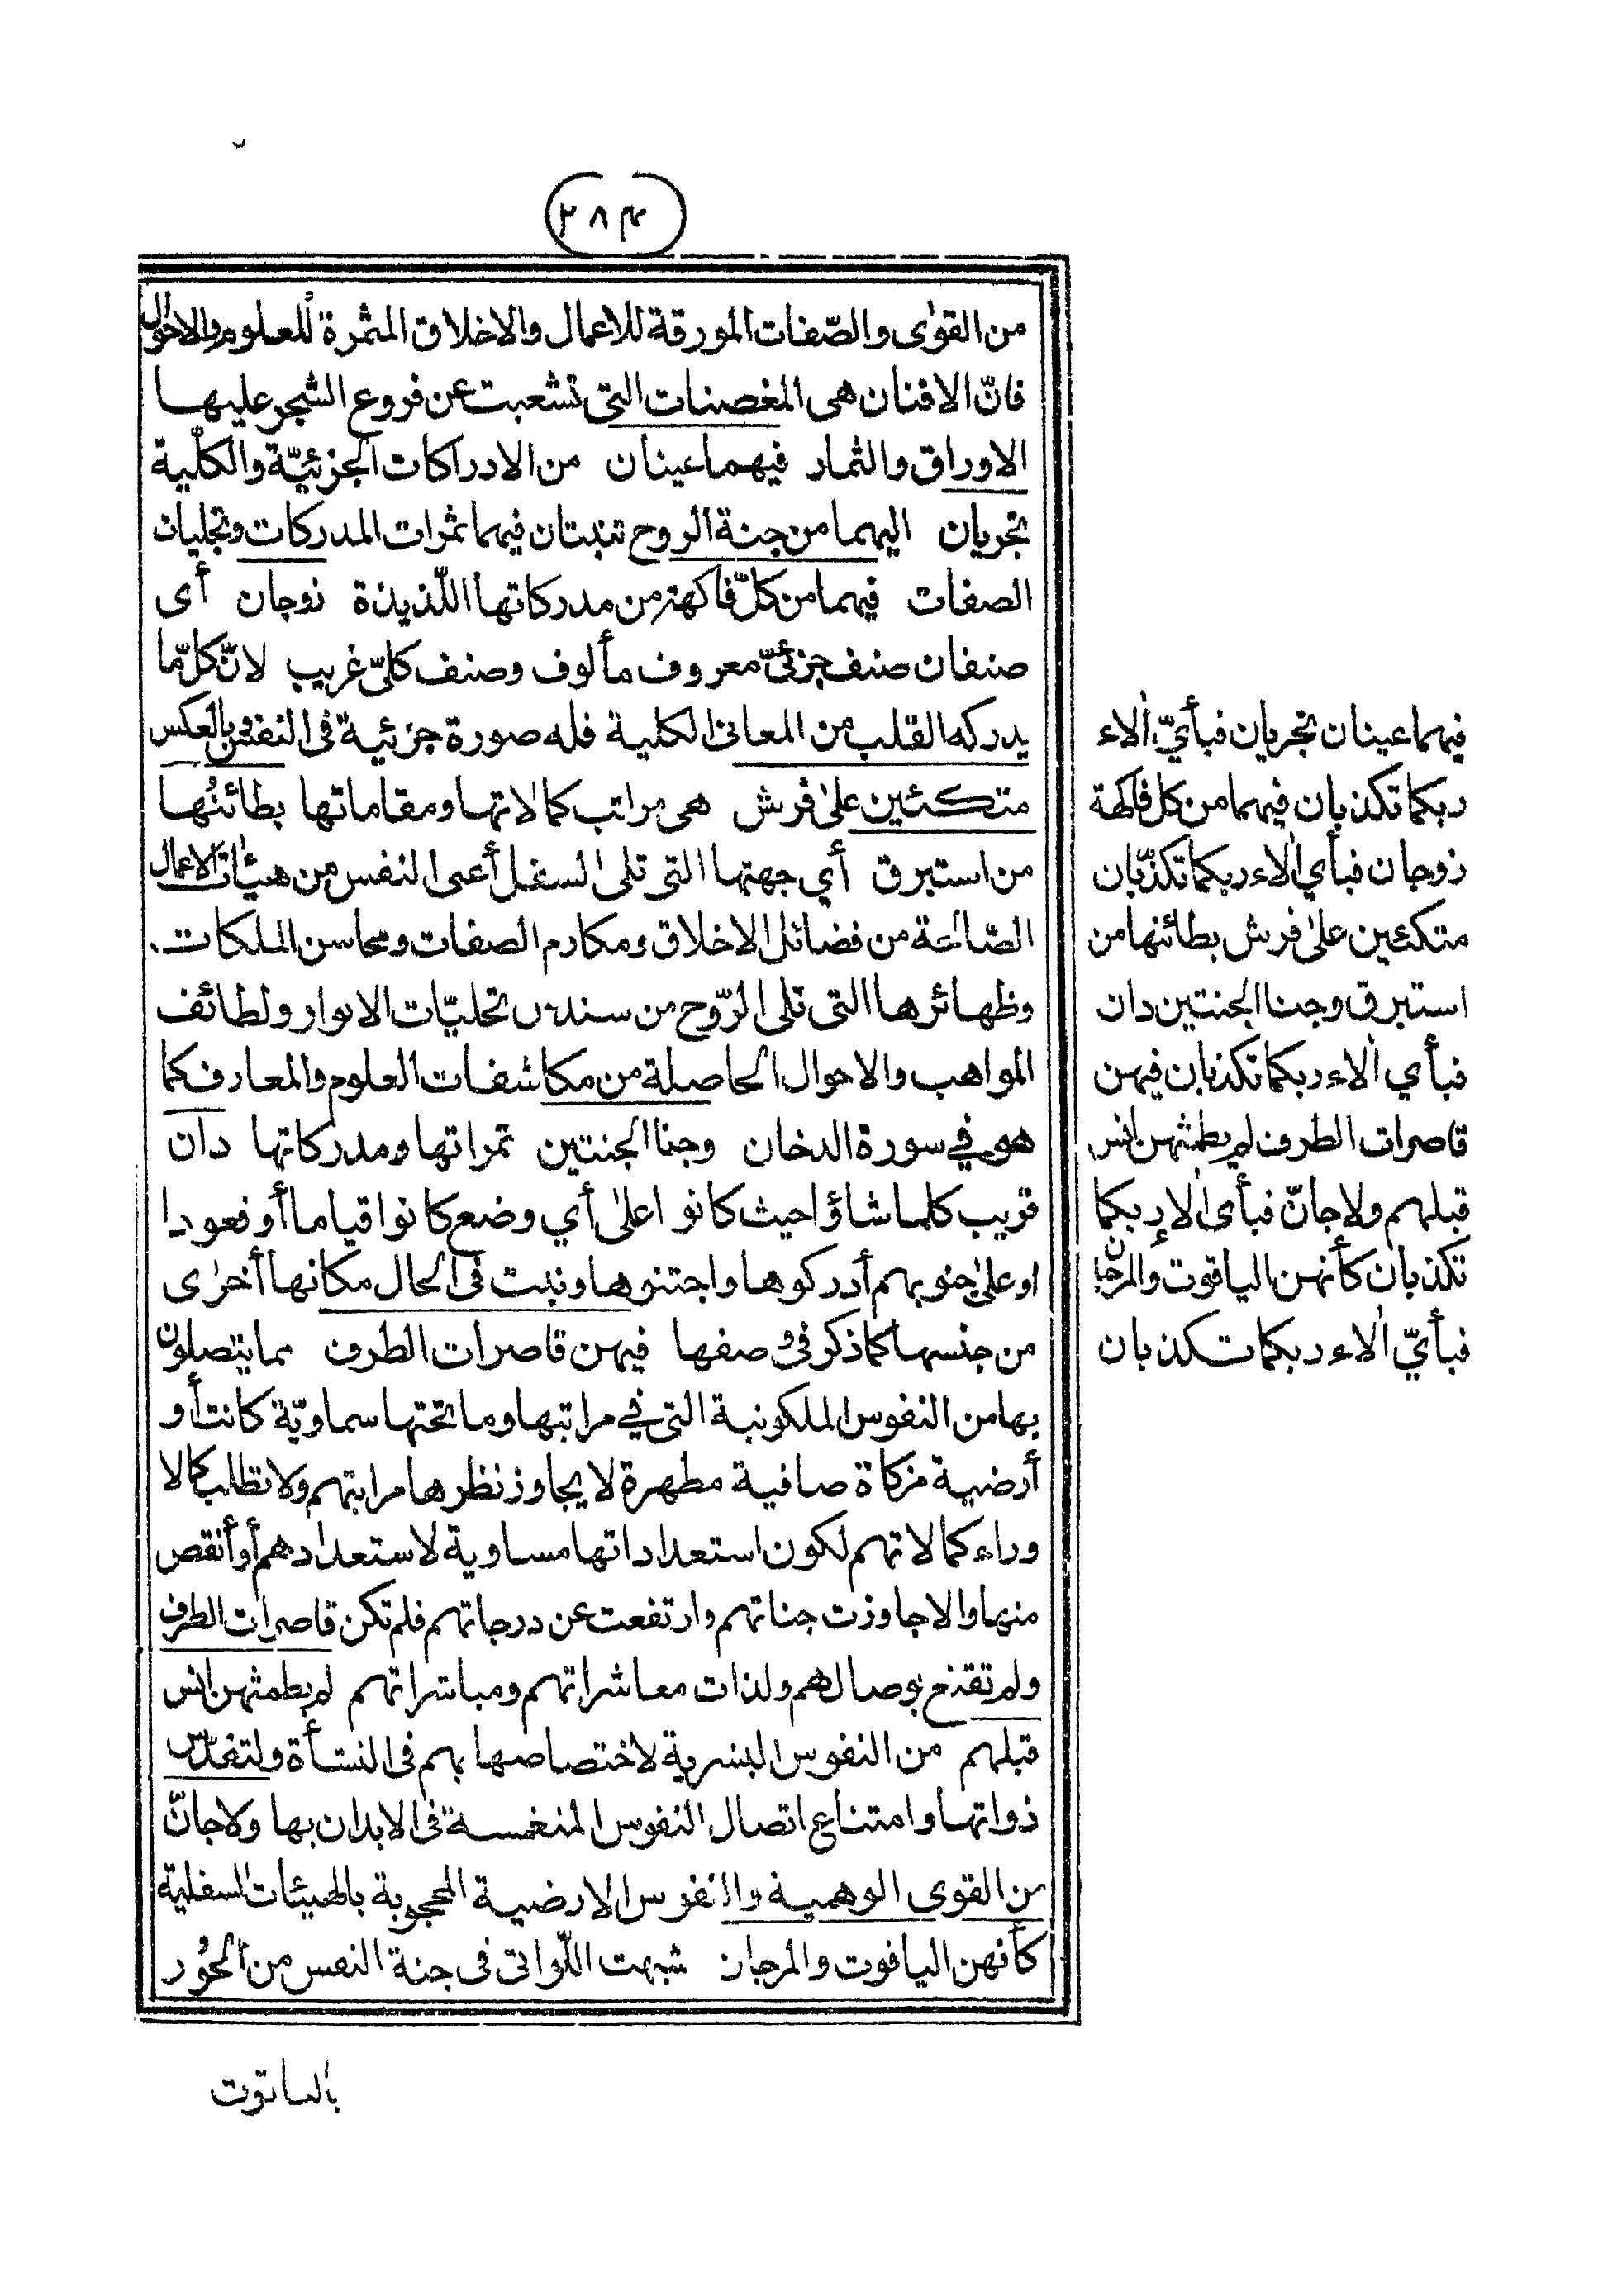 ٢٨٤
من القوٰى والصّفات المورقة للاعمال والاخلاق المثمرة للعلوم والاحوال
فانّ الافنان هى المغصنات التى تشعبت عن فروع الشجر عليها
الاوراق والثمار فيهما عينان من الادراكات الجزئيّة والكلّية
تجريان اليهما من جنة الروح تنبتان فيهما ثمرات المدركات وتجليات
الصفات فيهما من كلّ فاكهة من مدركاتها اللّذيذة زوجان أى
صنفان صنف جزئىّ معروف مألوف وصنف كلىّ غريب لانّ كلّ ما
يدركه القلب من المعانى الكلية فله صورة جزئية فى النفس وبالعكس
متكئين علىٰ فرش هى مراتب كمالاتها ومقاماتها بطائنُها
من استبرق أي جهتها التى تلى السفل أعنى النفس من هيٰاٰت الاعمال
الصّالحة من فضائل الاخلاق ومكارم الصفات ومحاسن الملكات
وظهائرها التى تلى الرّوح من سندس تجليّات الانوار ولطائف
المواهب والاحوال الحاصلة من مكاشفات العلوم والمعارف كما
هو في سورة الدخان وجنا الجنتين ثمراتها ومدركاتها دان
قريب كلما شاؤا حيث كانوا علىٰ أي وضع كانوا قياما أو قعودا
او علىٰ جنوبهم أدركوها واجتنوها ونبت فى الحال مكانها أخرٰى
من جنسها كما ذكر فى وصفها فيهن قاصرات الطرف مما يتصلون
بها من النفوس الملكوتية التى في مراتبها وما تحتها سماويّة كانت أو
أرضية مزكاة صافية مطهرة لا يجاوز نظرها مراتبهم ولا تطلب كمالا
وراء كمالاتهم لكون استعداداتها مساوية لاستعدادهم أو أنقص
منها والا جاوزت جناتهم وارتفعت عن درجاتهم فلم تكن قاصرات الطرف
ولم تقنع بوصالهم ولذات معاشراتهم ومباشراتهم لم يطمثهن انس
قبلهم من النفوس البشرية لاختصاصها بهم فى النشأة ولتقدّس
ذواتها وامتناع اتصال النفوس المنغمسة فى الابدان بها ولا جانّ
من القوى الوهمية والنفوس الارضية المحجوبة بالهيئات السفلية
كأنهن الياقوت والمرجان شبهت اللّواتى فى جنة النفس من الحُور
بالياقوت
فيهما عينان تجريان فبأيّ اٰلاء
ربكما تكذبان فيهما من كل فاكهة
زوجان فبأي اٰلاء ربكما تكذّبان
متكئين علىٰ فرش بطائنها من
استبرق وجنا الجنتين دان
فبأي اٰلاء ربكما تكذبان فيهن
قاصرات الطرف لم يطمثهن انس
قبلهم ولا جانّ فبأى اٰلاء ربكما
تكذبان كأنهن الياقوت والمرجان
فبأيّ اٰلاء ربكما تكذبان